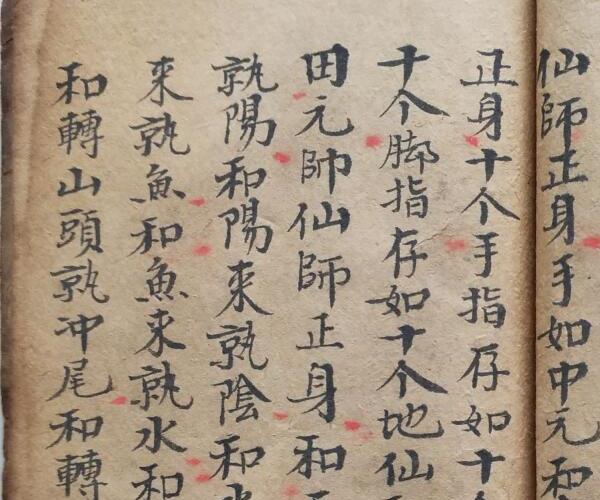 仙師正身手如中元和
正身十个手指存如十
十个脚指存如十个地仙
田元帅仙師正身和
孰陽和陽来孰陰和
来孰魚和魚来孰水和
和轉山頭孰冲尾和轉